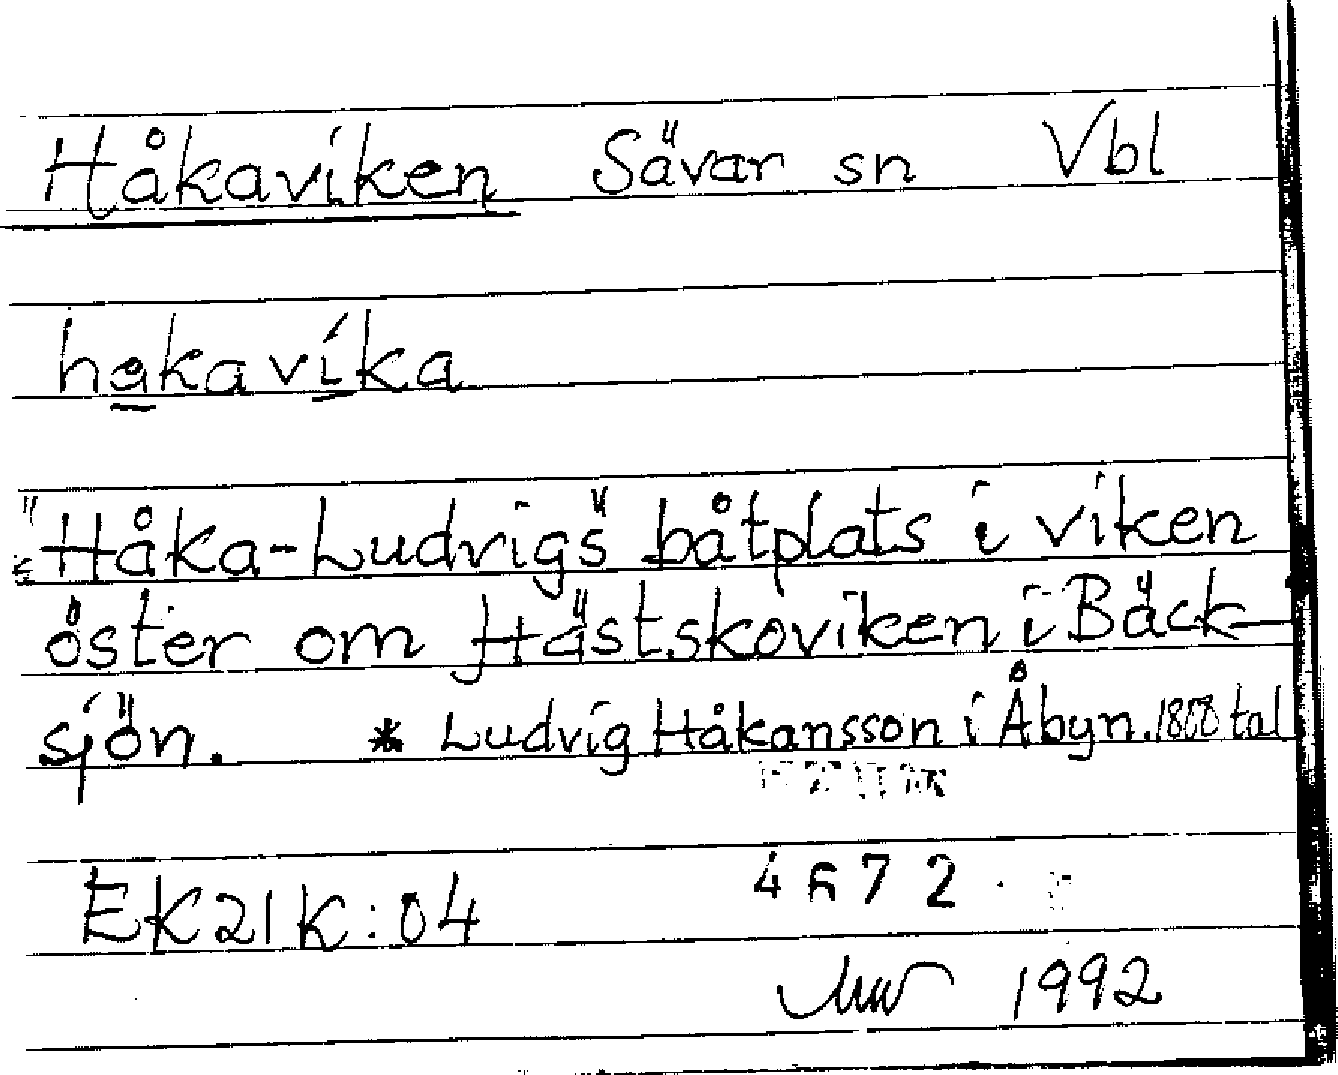 Håkaviken Sävar sn Vbl
hakavika
"Håka-Ludvigs" båtplats i viken
öster om Hästskoviken i Bäck-
sjön. * Ludvig Håkansson i Åbyn. 1800 tal
EK21K:04 4672
1992